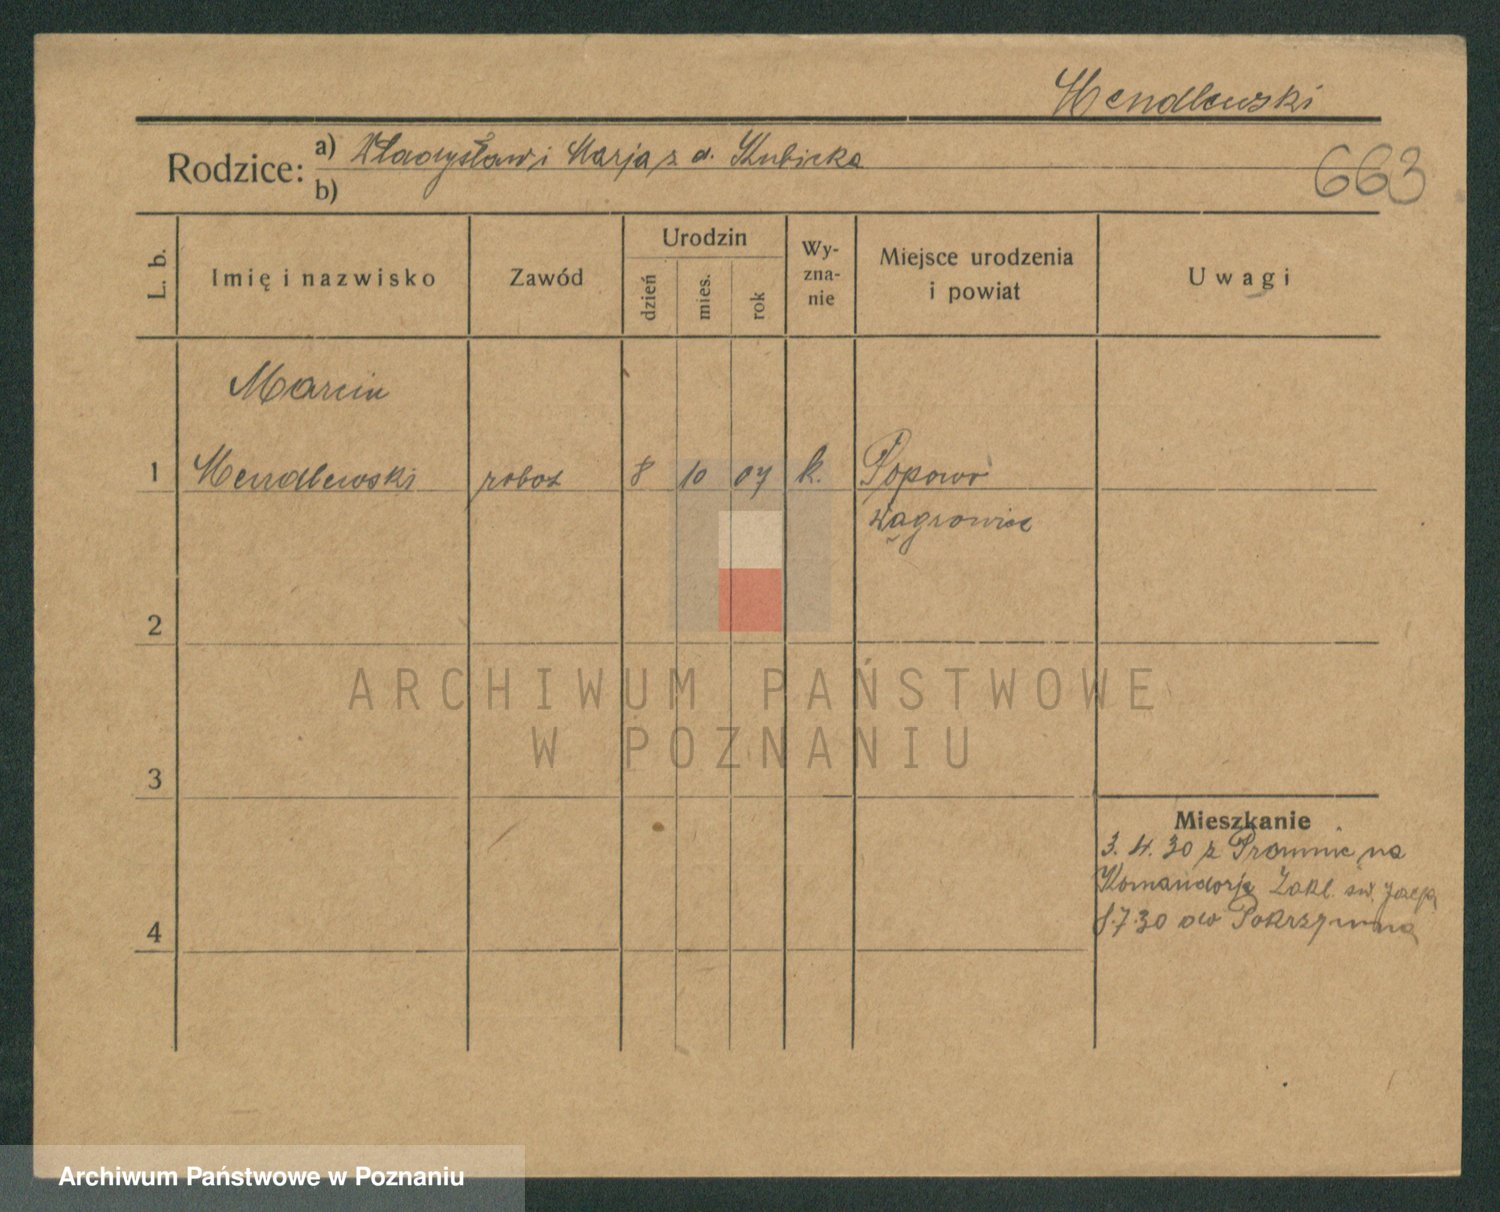 Mendlewski
Rodzice: a) Władysław i Marja z d. Kubicka
b)
663
L. b.
Imię i nazwisko
Zawód
Urodzin
dzień
mies.
rok
Wy-
zna-
nie
Miejsce urodzenia
i powiat
Uwagi
Marcin
1 Mendlewski robot 8 10 07 k. Popowo
Wągrowiec
2
3
4
Mieszkanie
3.4.30 z Promnic na
Komandorję Zakł. św. Jacja
8.7.30 do Pokrzywna
ARCHIWUM PAŃSTWOWE
W POZNANIU
Archiwum Państwowe w Poznaniu